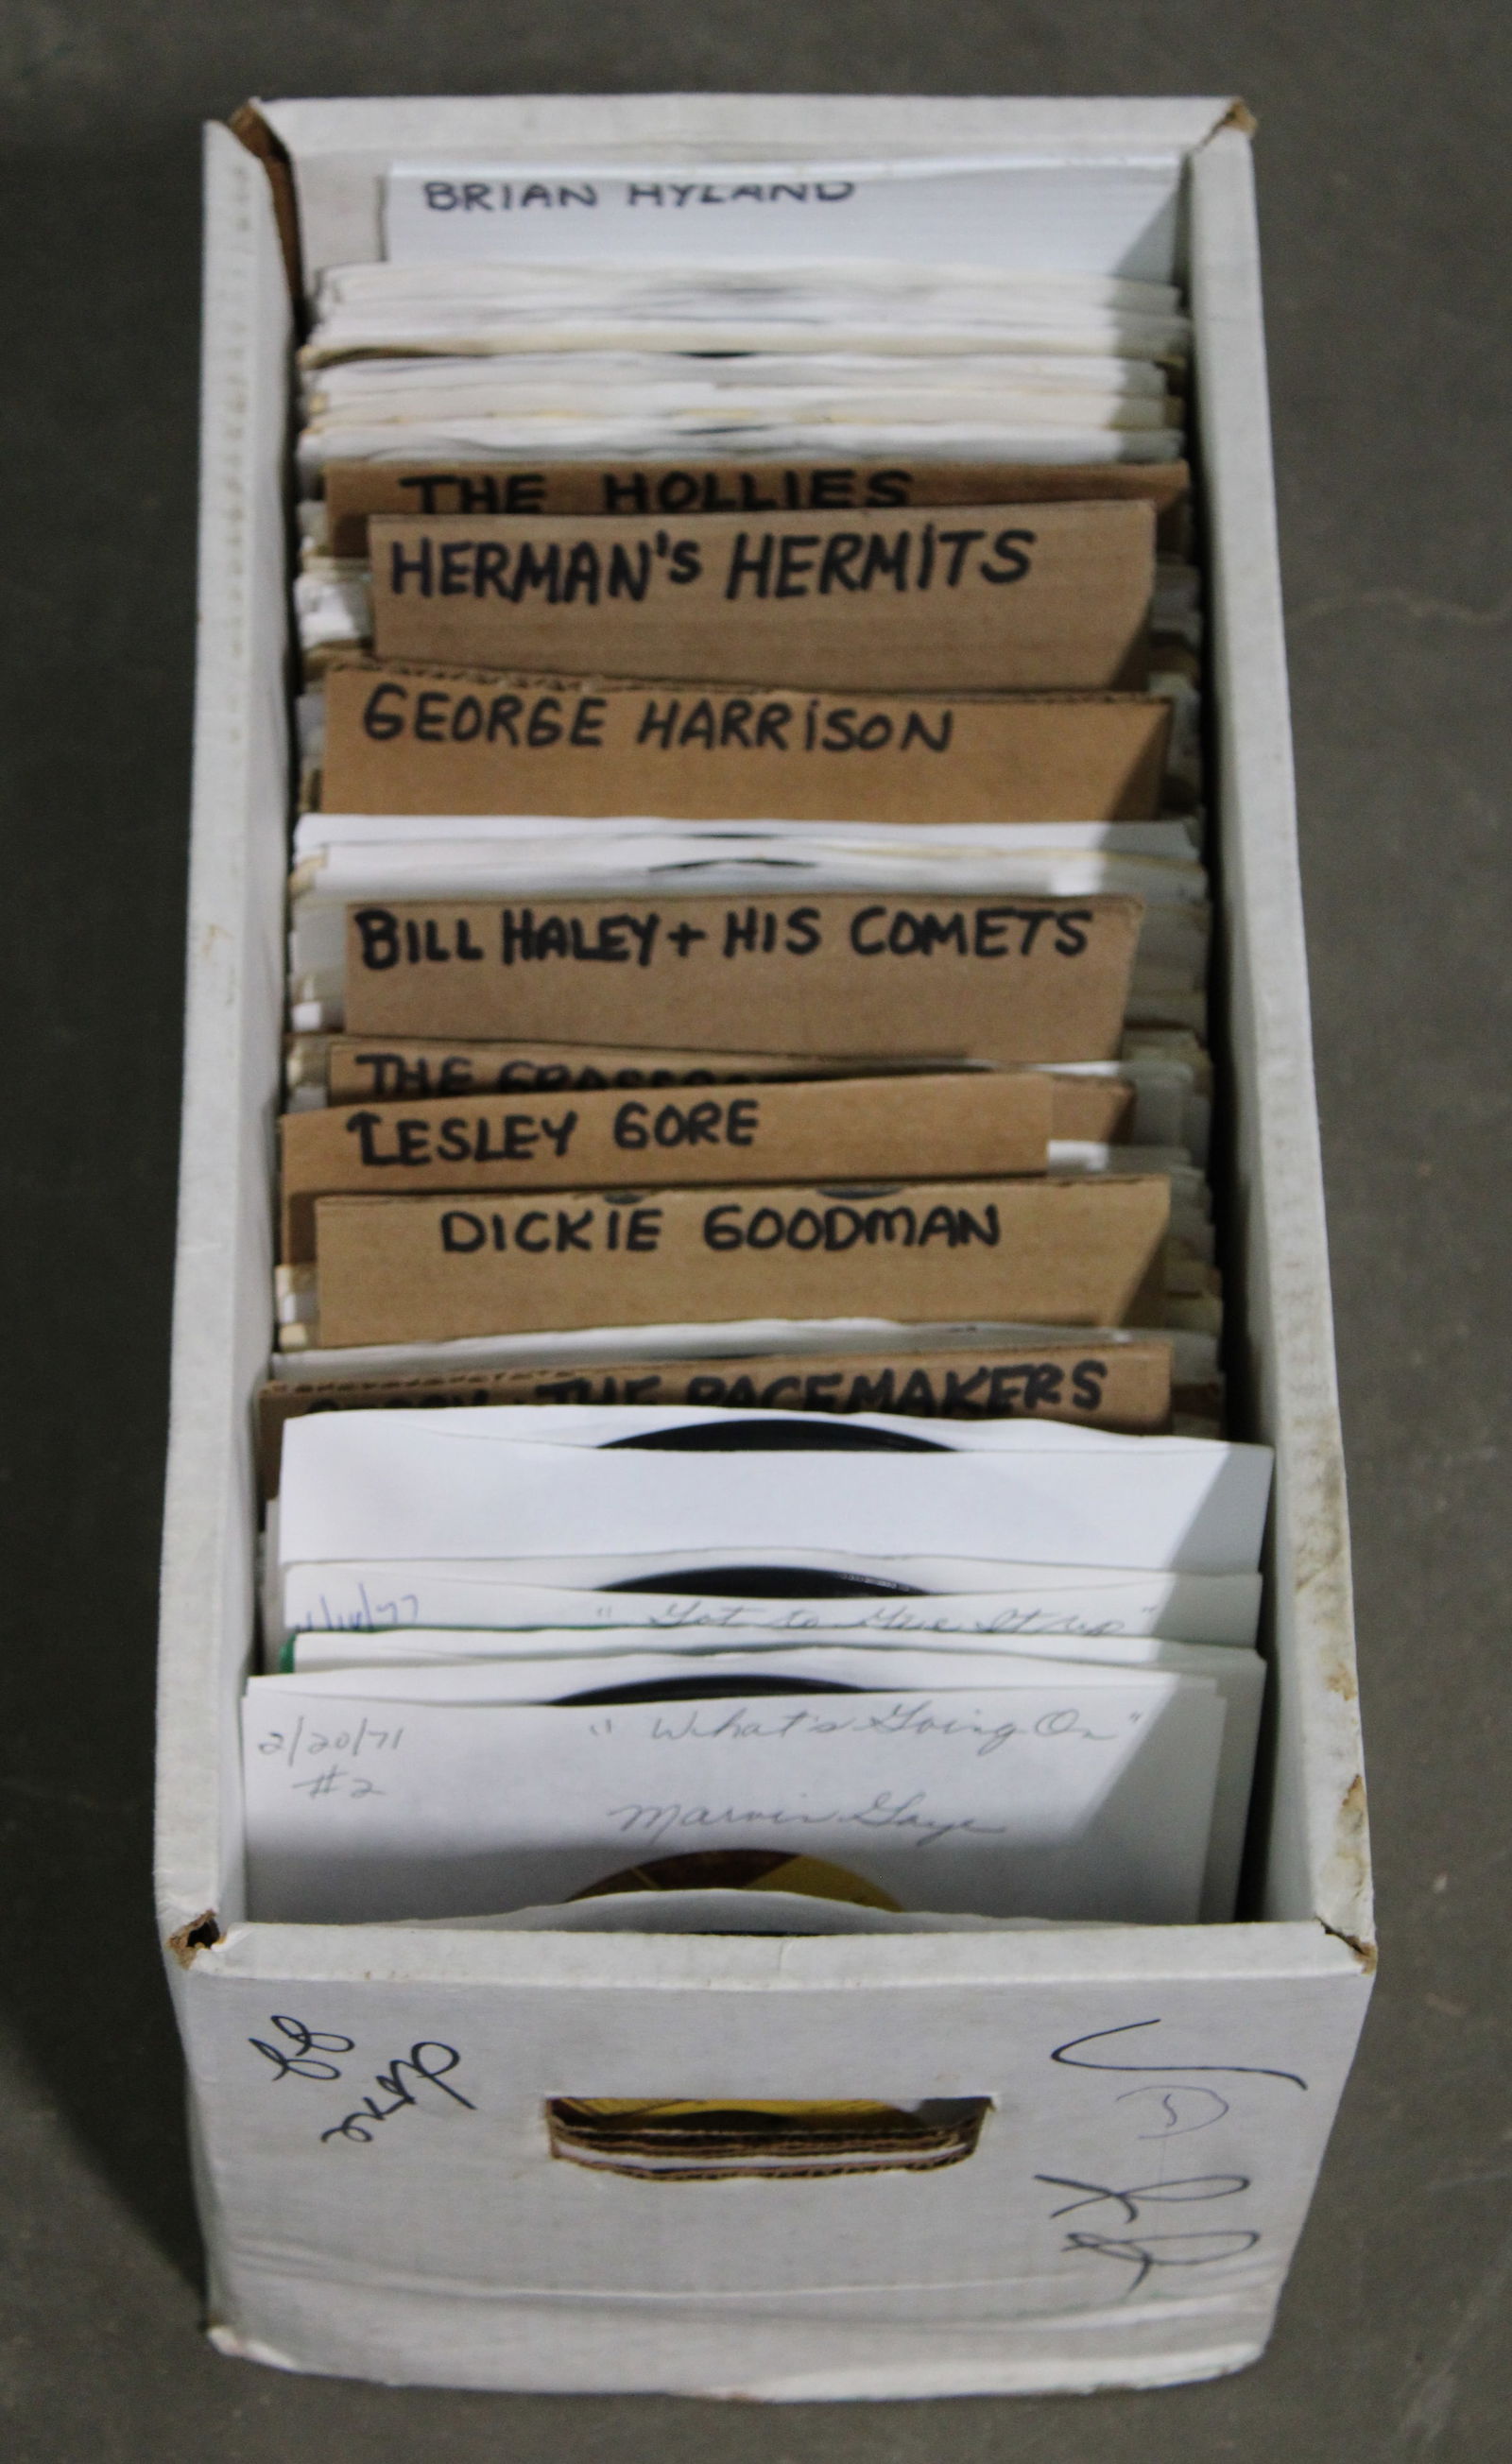 BRIAN HYLAND
THE HOLLIES
HERMAN'S HERMITS
GEORGE HARRISON
BILL HALEY + HIS COMETS
THE
LESLEY GORE
DICKIE GOODMAN
THE PACEMAKERS
"Got to Give It Up"
2/20/71 "What's Going On"
#2
Marvin Gaye
done